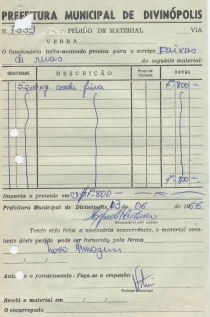 PREFEITURA MUNICIPAL DE DIVINÓPOLIS
N. PEDIDO DE MATERIAL VIA
VERBA
O funcionário infra-assinado precisa para o serviço faixas
de ruas do seguinte material:
QUANTIDADE DESCRIÇÃO Preço da Unidade TOTAL
fina 800—
800—
Importa o presente em 800—
Prefeitura Municipal de Divinópolis, 03 de 06 de 1966
Responsável pelo pedido
Tendo sido feita a necessária concorrência, o material constante dêste pedido pode ser fornecido pela firma
Novo
Autorizo o fornecimento - Faça-se o empenho
Prefeito Municipal
Recebi o material em / /
O encarregado